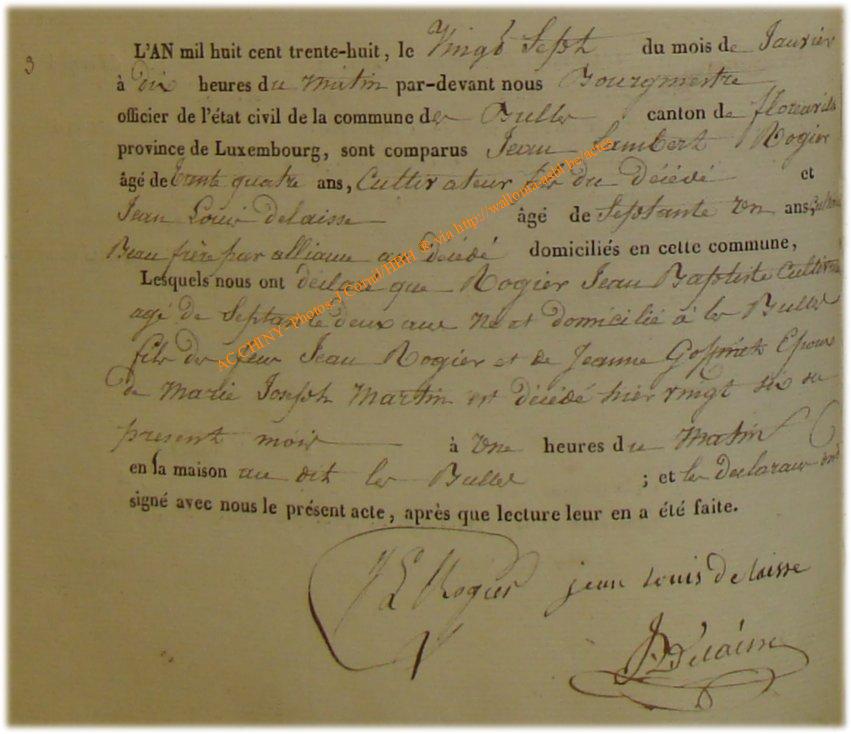 3
L'AN mil huit cent trente-huit, le Vingt Sept du mois de Janvier
à dix heures du Matin par-devant nous Bourgmestre
officier de l'état civil de la commune des Bulles canton de florenville
province de Luxembourg, sont comparus Jean Lambert Rogier
âgé de trente quatre ans, Cultivateur fils du décédé et
Jean Louis delaisse âgé de Septante un ans,
Beau frère par alliance au décédé domiciliés en cette commune,
Lesquels nous ont déclaré que Rogier Jean Baptiste
agé de Septante deux ans né et domicilié à les Bulles
fils de feu Jean Rogier et de Jeanne Epoux
de Marie Joseph Martin est décédé hier vingt six du
présent mois à une heures du Matin
en la maison au dit les Bulles ; et les declarans ont
signé avec nous le présent acte, après que lecture leur en a été faite.
JL Rogier jean Louis delaisse
ACCHINY - Photos J Cornil/HBH ® via http://wallonia.asbl.be/actes